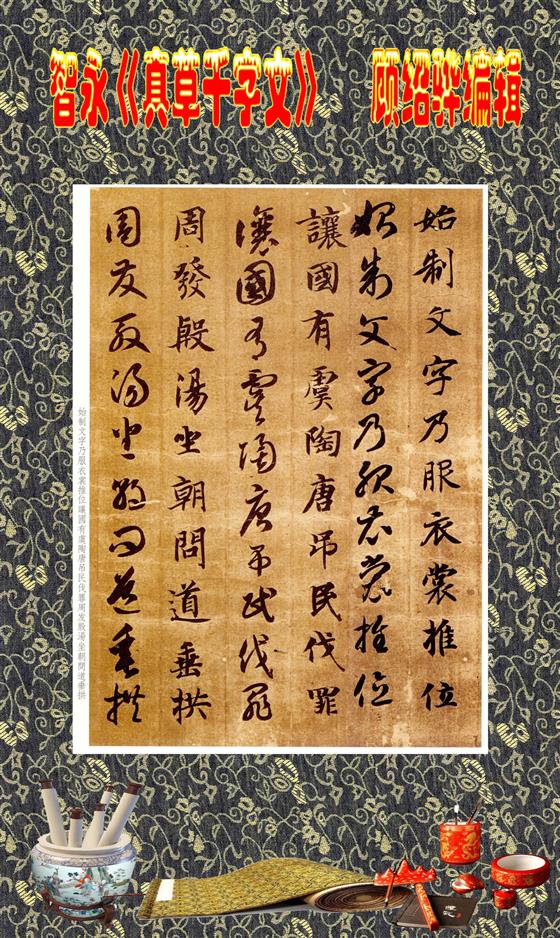 智永《真草千字文》 顾绍骅编辑
始制文字乃服衣裳推位
始制文字乃服衣裳推位
讓國有虞陶唐吊民伐罪
讓國有虞陶唐吊民伐罪
周發殷湯坐朝問道垂拱
周發殷湯坐朝問道垂拱
始制文字乃服衣裳推位讓國有虞陶唐吊民伐罪周发殷湯坐朝問道垂拱